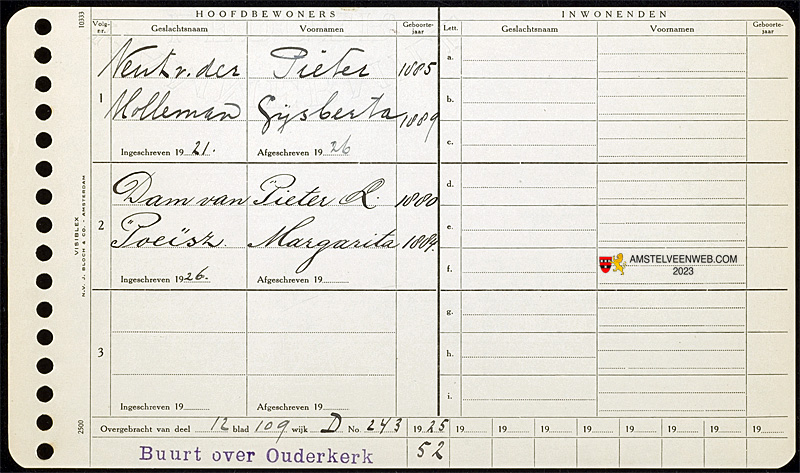 HOOFDBEWONERS INWONENDEN
Volg-nr. Geslachtsnaam Voornamen Geboorte-jaar Lett. Geslachtsnaam Voornamen Geboorte-jaar
10333
1
Neut v. der Pieter 1885
Molleman Gijsberta 1889
Ingeschreven 1921. Afgeschreven 1926
2
Dam van Pieter R. 1880
Poeïsz. Margarita 1884.
Ingeschreven 1926. Afgeschreven 19
3
Ingeschreven 19 Afgeschreven 19
a.
b.
c.
d.
e.
f.
g.
h.
i.
AMSTELVEENWEB.COM
2023
VISIBLEX
N.V. J. BLOCH & CO. - AMSTERDAM
2500
Overgebracht van deel 12 blad 109 wijk D No. 243 1925 19 19 19 19 19 19 19 19
52
Buurt over Ouderkerk